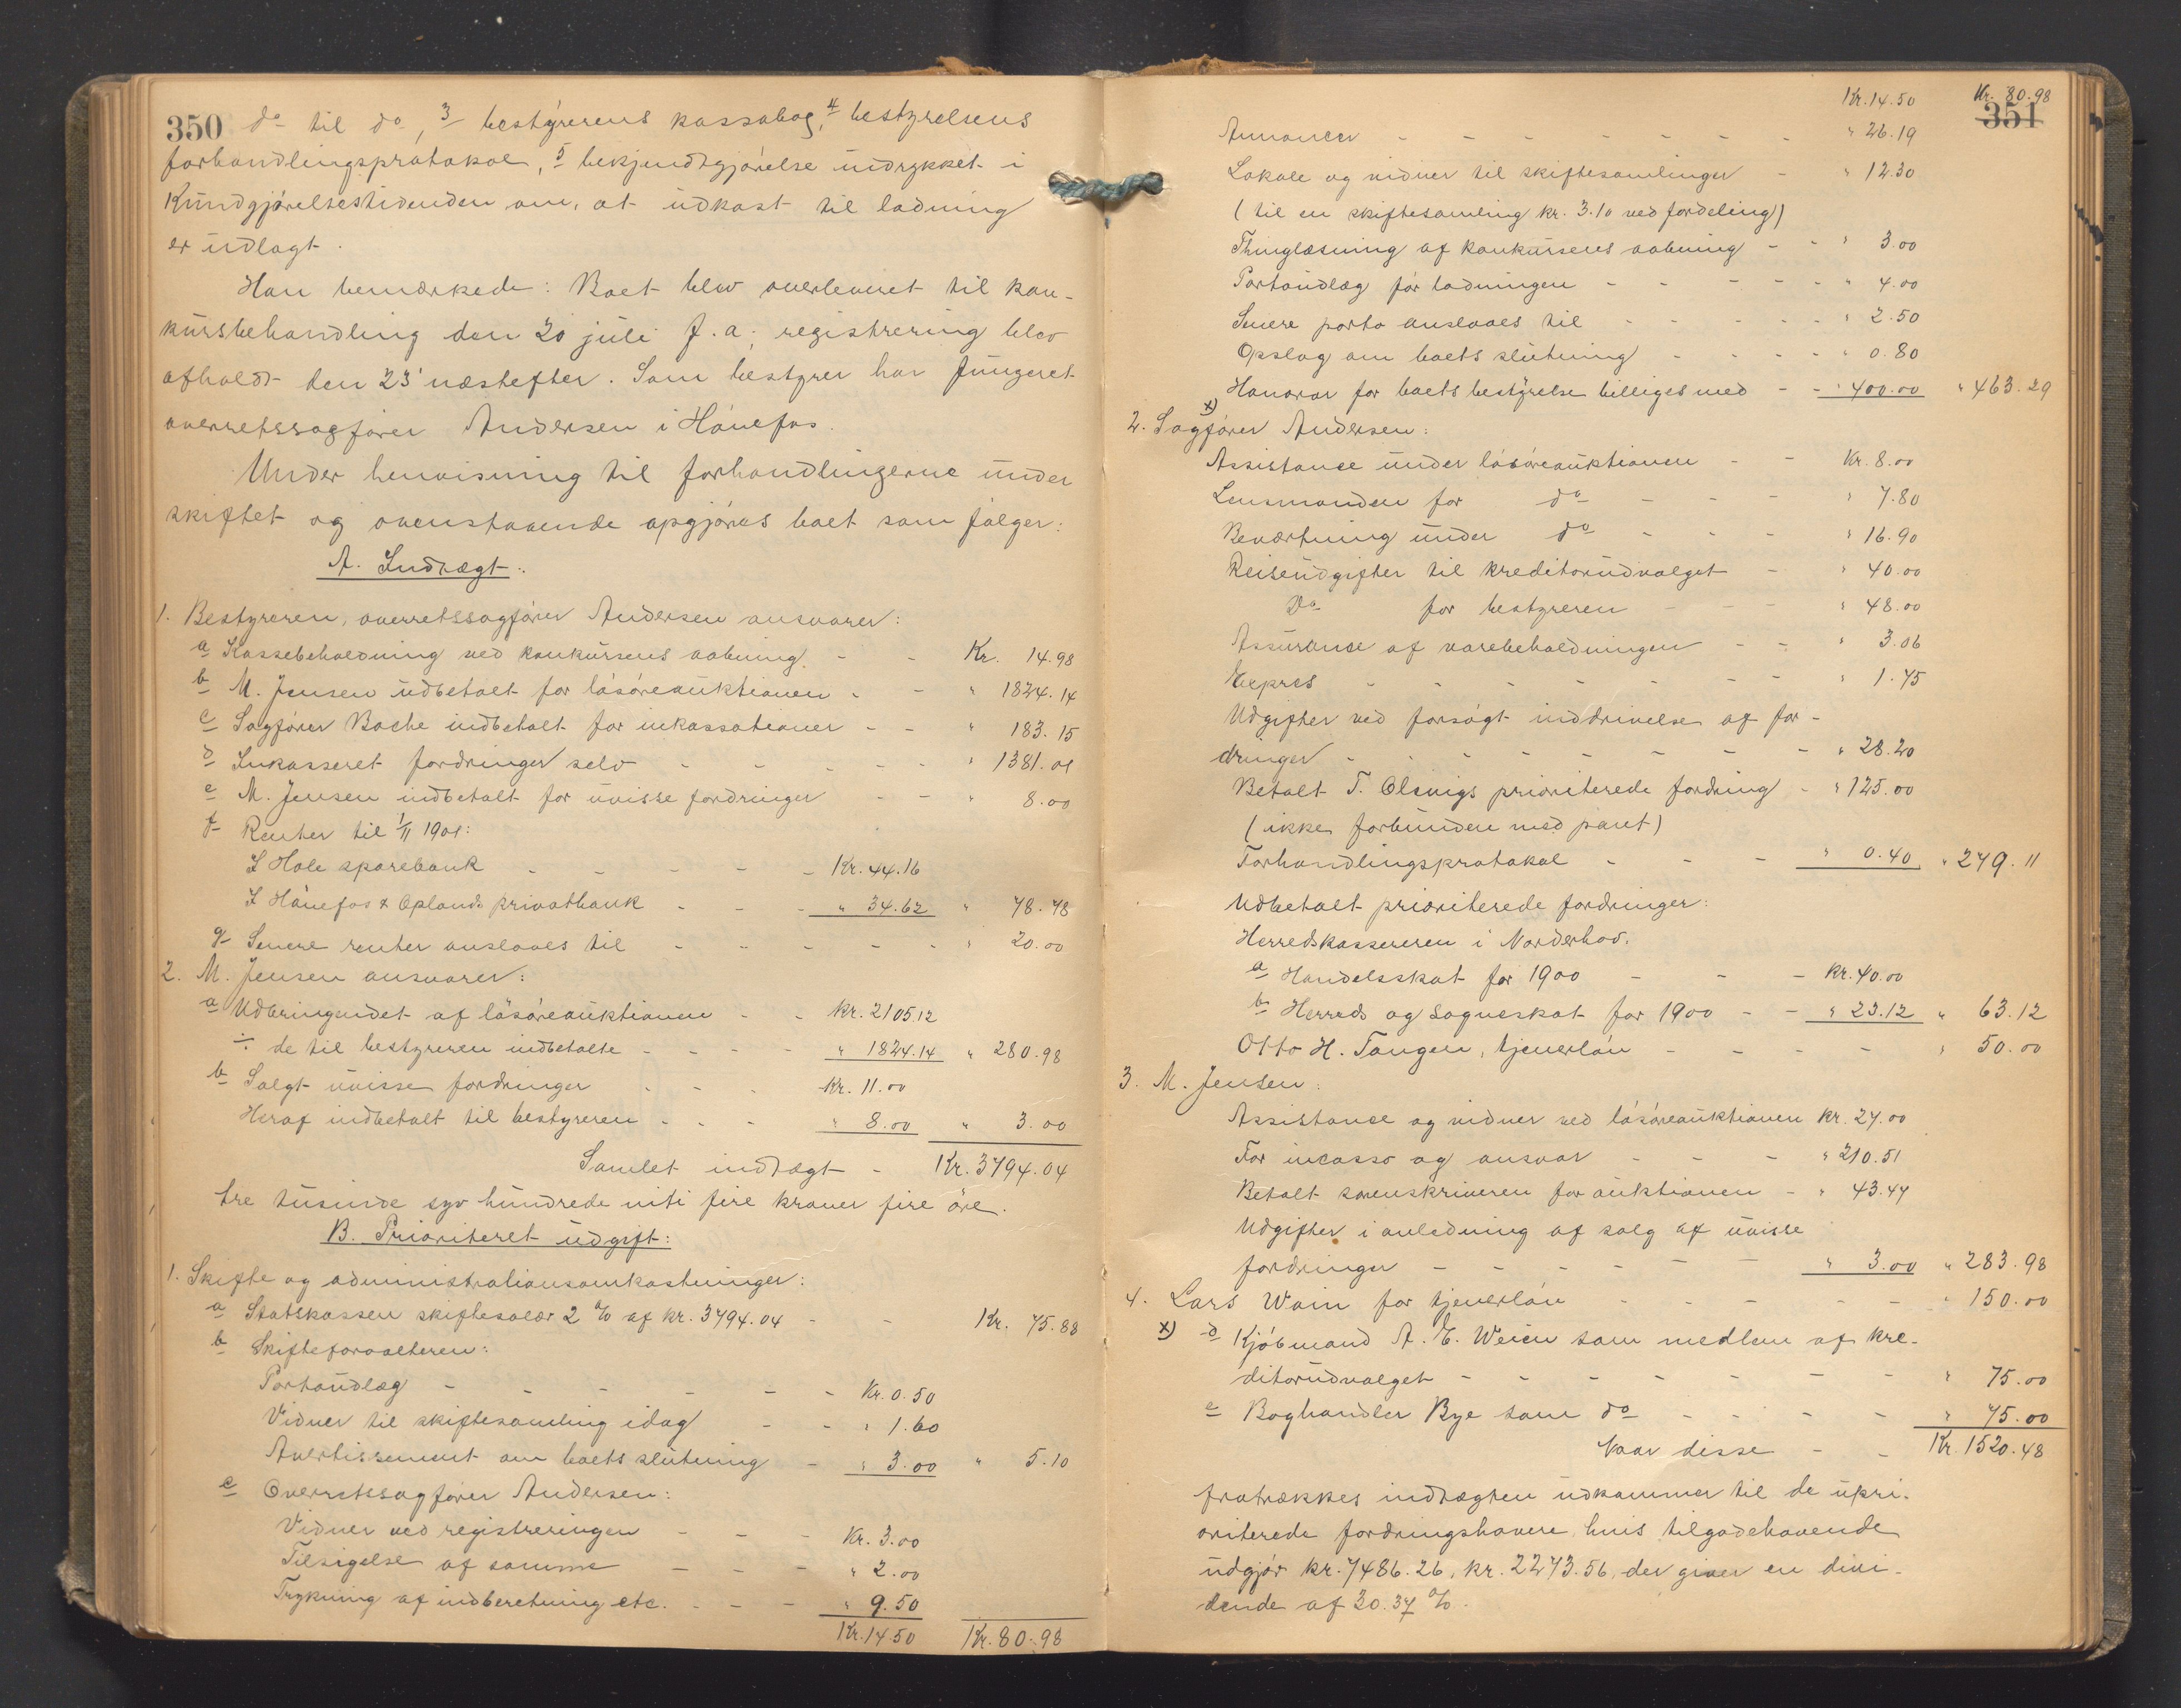 350 do til do, 3 bestyrerens kassabog, 4 bestyrelsens
forhandlingsprotokol, 5 bekjendtgjørelse indrykket i
Kundgjørelsestidenden om, at udkast til lodning
er udlagt.
Han bemærkede: Boet blev overleveret til kon-
kursbehandling den 20 juli f.a.; registrering blev
afholdt den 23' næstefter. Som bestyrer har fungeret
overretssagfører Andersen i Hønefos.
Under henvisning til forhandlingerne under
skiftet og ovenstaaende opgjøres boet som følger:
A. Indtægt:
1. Bestyreren, overretssagfører Andersen ansvarer:
a Kassebeholdning ved konkursens aabning. - - Kr. 14.98
b M. Jensen udbetalt for løsøreauktionen - - " 1824.14
c Sagfører Bache indbetalt for inkassationer - - " 183.15
d Inkasseret fordringer selv - - - - - " 1381.01
e M. Jensen indbetalt for uvisse fordringer - - " 8.00
f Renter til 1/11 1901:
I Hole sparebank - - - - - Kr. 44.16
I Hønefos & Oplands privatbank - - - " 34.62 " 78.78
g Senere renter anslaaes til - - - - - " 20.00
2. M. Jensen ansvarer:
a Udbringendet af løsøreauktionen - - Kr. 2105.12
÷ de til bestyreren indbetalte - - - - " 1824.14 " 280.98
b Solgt uvisse fordringer - - - Kr. 11.00
Heraf indbetalt til bestyreren - - - " 8.00 " 3.00
Samlet indtægt - Kr. 3794.04
tre tusinde syv hundrede niti fire kroner fire øre.
B. Prioriteret udgift:
1. Skifte og administrationsomkostninger:
a Statskassen skiftesalær 2 % af kr. 3794.04 - - Kr. 75.88
b Skifteforvalteren:
Portoudlæg - - - - - - Kr. 0.50
Vidner til skiftesamling idag - - " 1.60
Avertissement om boets slutning - " 3.00 " 5.10
c Overretssagfører Andersen:
Vidner ved registreringen - - - Kr. 3.00
Tilsigelse af samme - - - " 2.00
Trykning af indberetning etc. - - - " 9.50
Kr. 14.50 Kr. 80.98
Kr. 14.50 Kr. 80.98
351
Annoncer - - - - - - - " 26.19
Lokale og vidner til skiftesamlinger - " 12.30
(til en skiftesamling kr. 3.10 ved fordeling)
Thinglæsning af konkursens aabning - - " 3.00
Portoudlæg før lodningen - - - - - " 4.00
Senere porto anslaaes til - - - - - " 2.50
Opslag om boets slutning - - - - " 0.80
Honorar for boets bestyrelse billiges med - - " 400.00 " 463.29
x)
2. Sagfører Andersen:
Assistance under løsøreauktionen - - Kr. 8.00
Lensmanden for do - - - " 7.80
Beværtning under do - - - " 16.90
Reiseudgifter til kreditorudvalget - " 40.00
Do for bestyreren - - - " 48.00
Assurance af varebeholdningen - - " 3.06
Expres - - - - - - - - " 1.75
Udgifter ved forsøgt inddrivelse af for-
dringer - - - - - - - - " 28.20
Betalt T. Olsvigs prioriterede fordring - " 125.00
(ikke forbunden med pant)
Forhandlingsprotokol - - - " 0.40 " 279.11
Udbetalt prioriterede fordringer:
Herredskassereren i Norderhov.
a Handelsskat for 1900 - - - Kr. 40.00
b Herreds og Sogneskat for 1900 - - " 23.12 " 63.12
Otto H. Tangen, tjenerløn - - - - " 50.00
3. M. Jensen:
Assistance og vidner ved løsøreauktionen Kr. 27.00
For incasso og ansvar - - - " 210.51
Betalt sorenskriveren for auktionen - " 43.47
Udgifter i anledning af salg af uvisse
fordringer - - - - - - " 3.00 " 283.98
4. Lars Wain for tjenerløn - - - - - " 150.00
x) d Kjøbmand A. E. Weien som medlem af kre-
ditorudvalget - - - - - - - - " 75.00
e Boghandler Bye som do - - - - - " 75.00
Naar disse - - Kr. 1520.48
fratrækkes indtægten udkommer til de upri-
oriterede fordringshavere, hvis tilgodehavende
udgjør kr. 7486.26, kr. 2273.56, der giver en divi-
dende af 30.37 %.